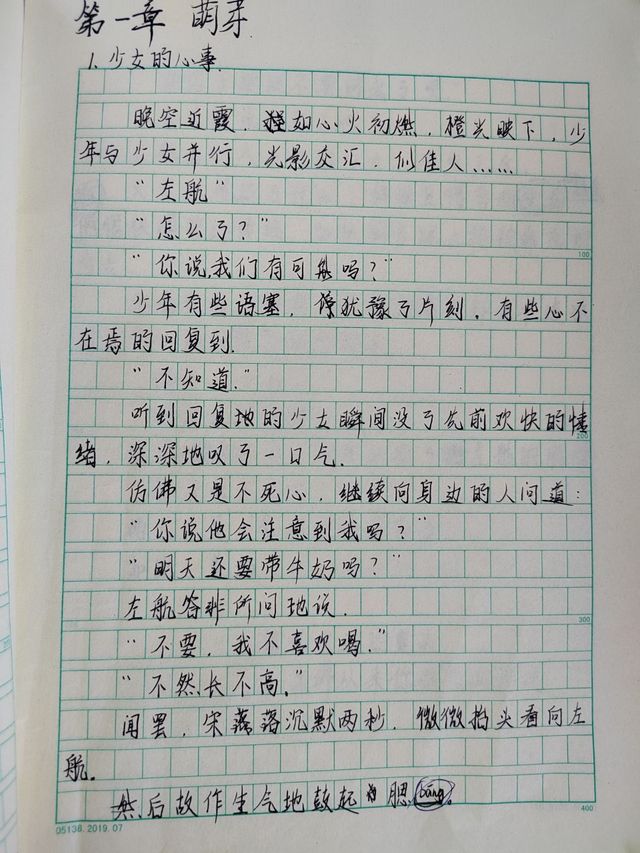 第一章 萌芽
1.少女的心事.
晚空近霞，犹如心火初燃，橙光映下，少
年与少女并行，光影交汇，似佳人……
“左航”
“怎么了？”
“你说,我们有可能吗？”
少年有些语塞，犹豫了片刻，有些心不
在焉的回复到.
“不知道.”
听到回复地的少女瞬间没了先前欢快的情
绪，深深地叹了一口气.
仿佛又是不死心，继续向身边的人问道：
“你说他会注意到我吗？”
“明天还要带牛奶吗？”
左航答非所问地说.
“不要，我不喜欢喝.”
“不然长不高.”
闻罢，宋落落沉默两秒，微微抬头看向左
航.
然后故作生气地鼓起腮 bāng。
100
200
300
400
05138.2019.07